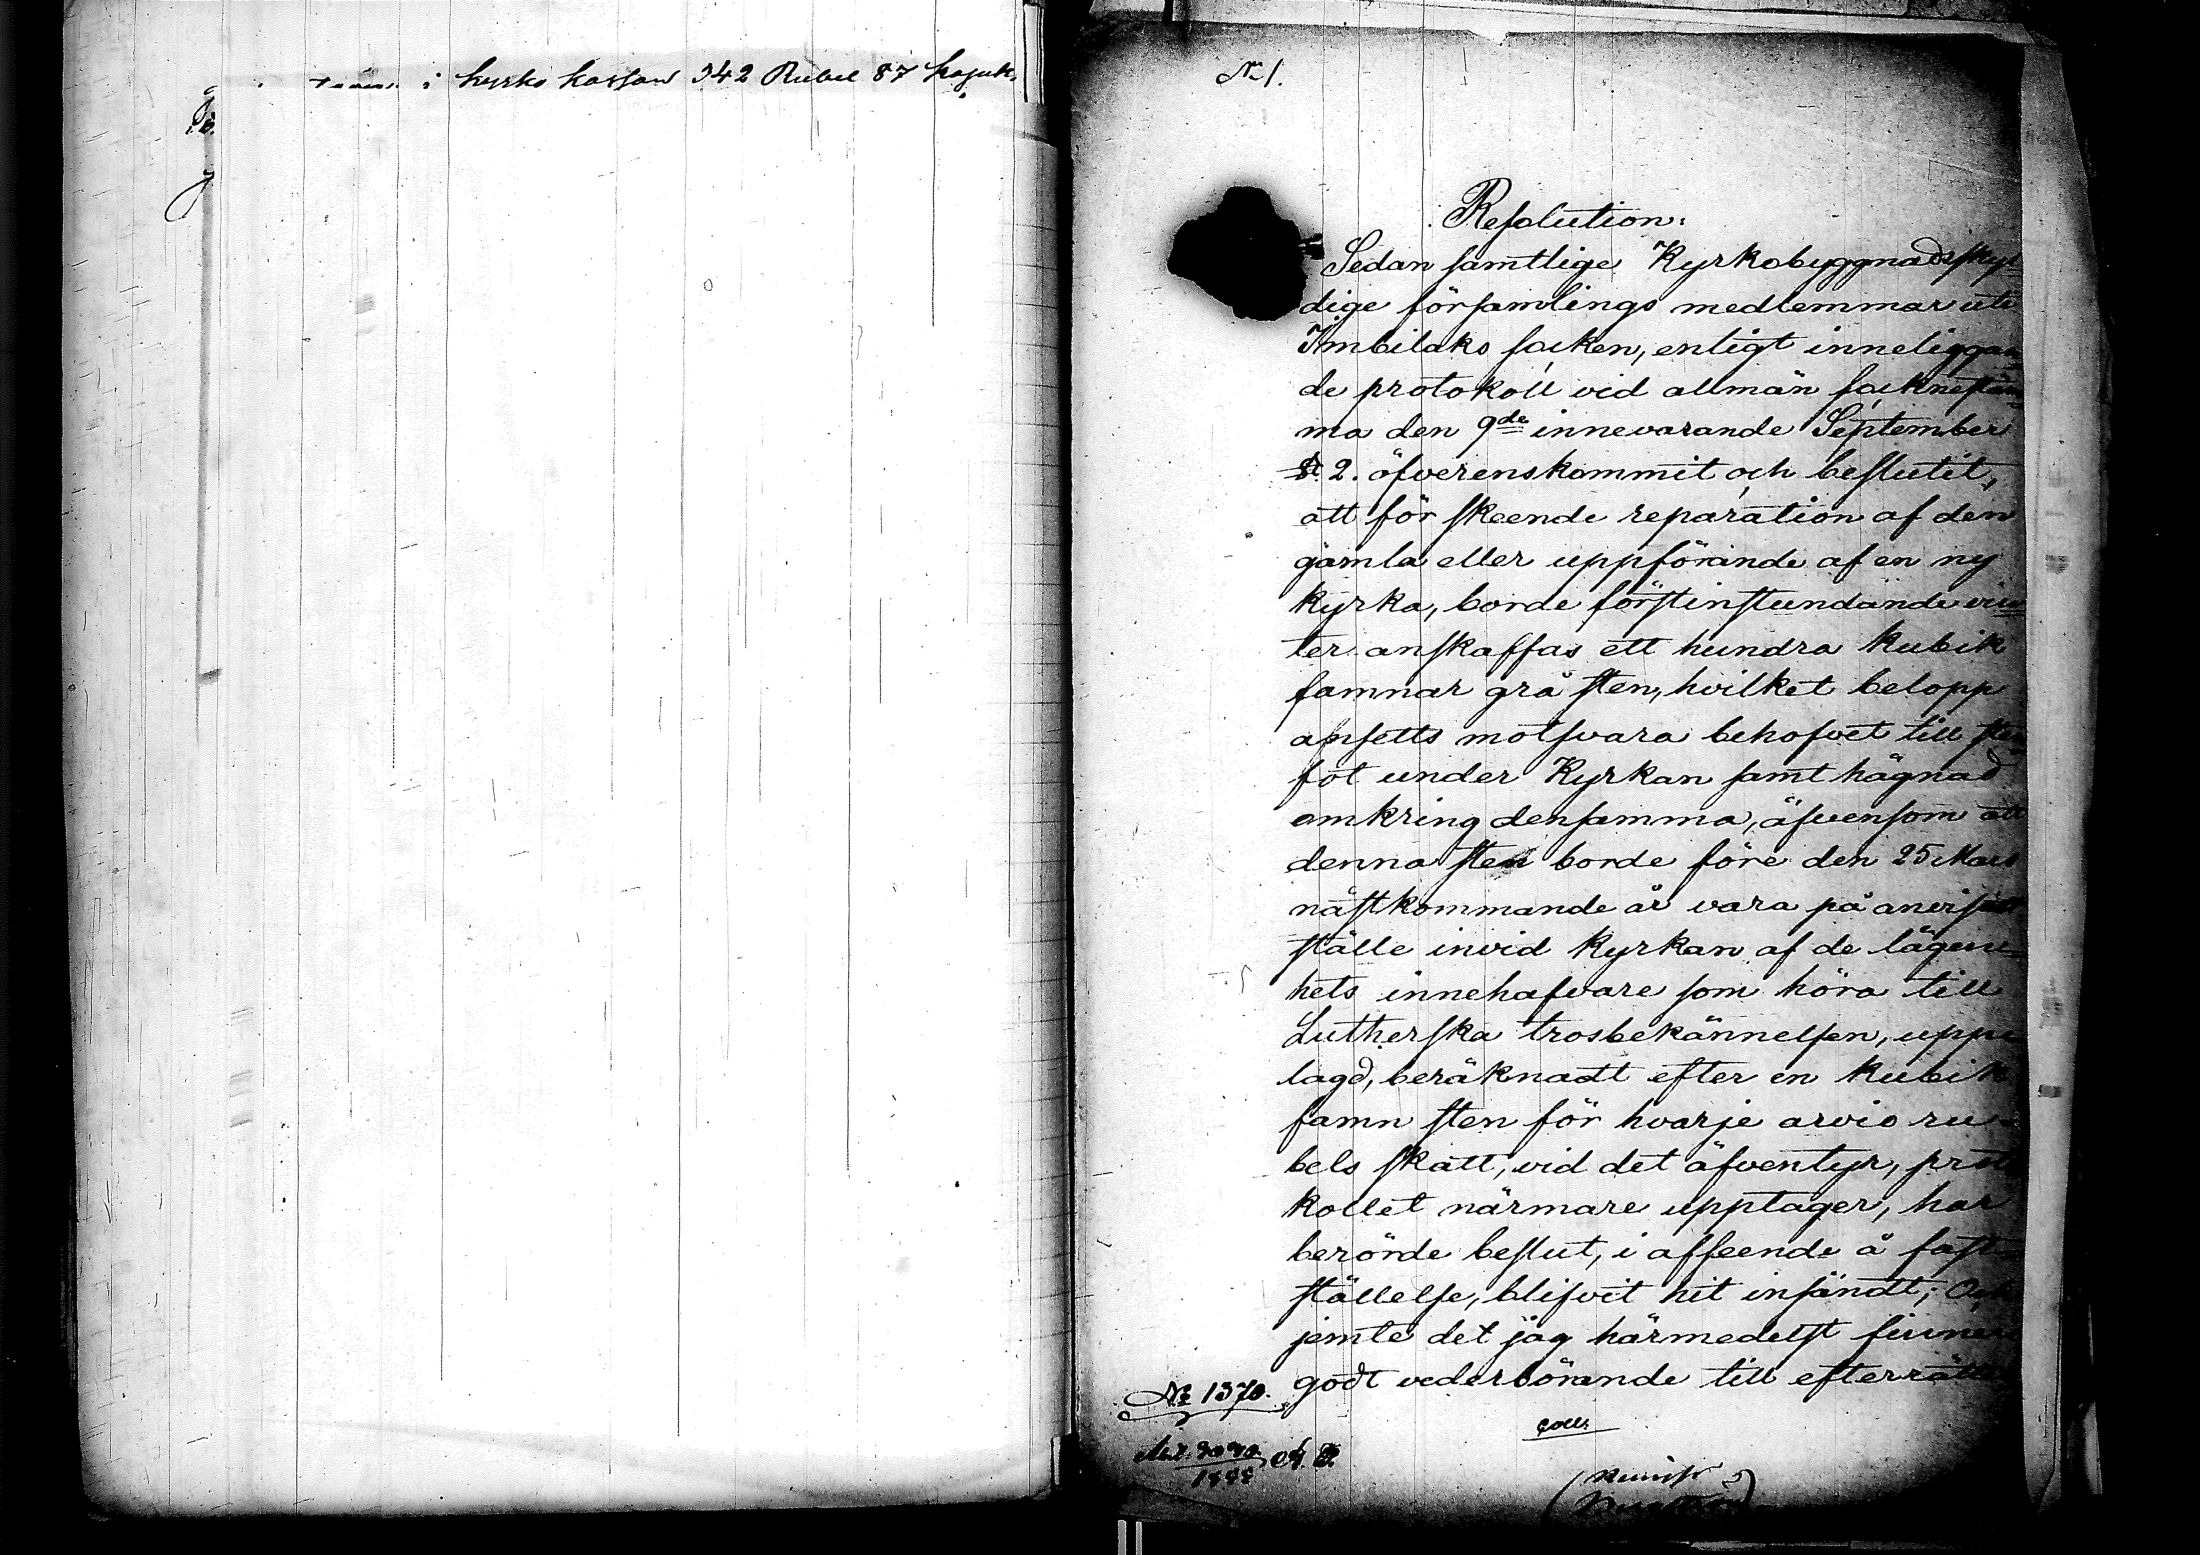 i kyrko kassan 342 Rubel 87 kopek.
N 1.
Resolution:
Sedan samtlige Kyrkobyggnadsskyl=
dige församlings medlemmar uti
Imbilaks socken, enligt inneliggan=
de protokoll vid allmän socknestäm=
ma den 9de innevarande September
§ 2. öfverenskommit och beslutit,
att för skeende reparation af den
gamla eller uppförande af en ny
kyrka, borde förstinstundande vin=
ter anskaffas ett hundra kubik
famnar grå sten, hvilket belopp
ansetts motsvara behofvet till sten
fot under Kyrkan samt hägnad
omkring densamma, äfvensom att
denna sten borde före den 25 Mars
nästkommande år vara på anvisadt
ställe invid Kyrkan af de lägen=
hets innehafvare som höra till
Lutherska trosbekännelsen, upp=
lagd, beräknadt efter en kubik
famn sten för hvarje arvio ru=
bels skatt, vid det äfventyr, proto
kollet närmare upptager, har
berörde beslut, i afseende å fast=
ställelse, blifvit hit insändt; Och
jemte det jag härmedelst finner
godt vederbörande till efterrätt
№ 1370.
Coll.